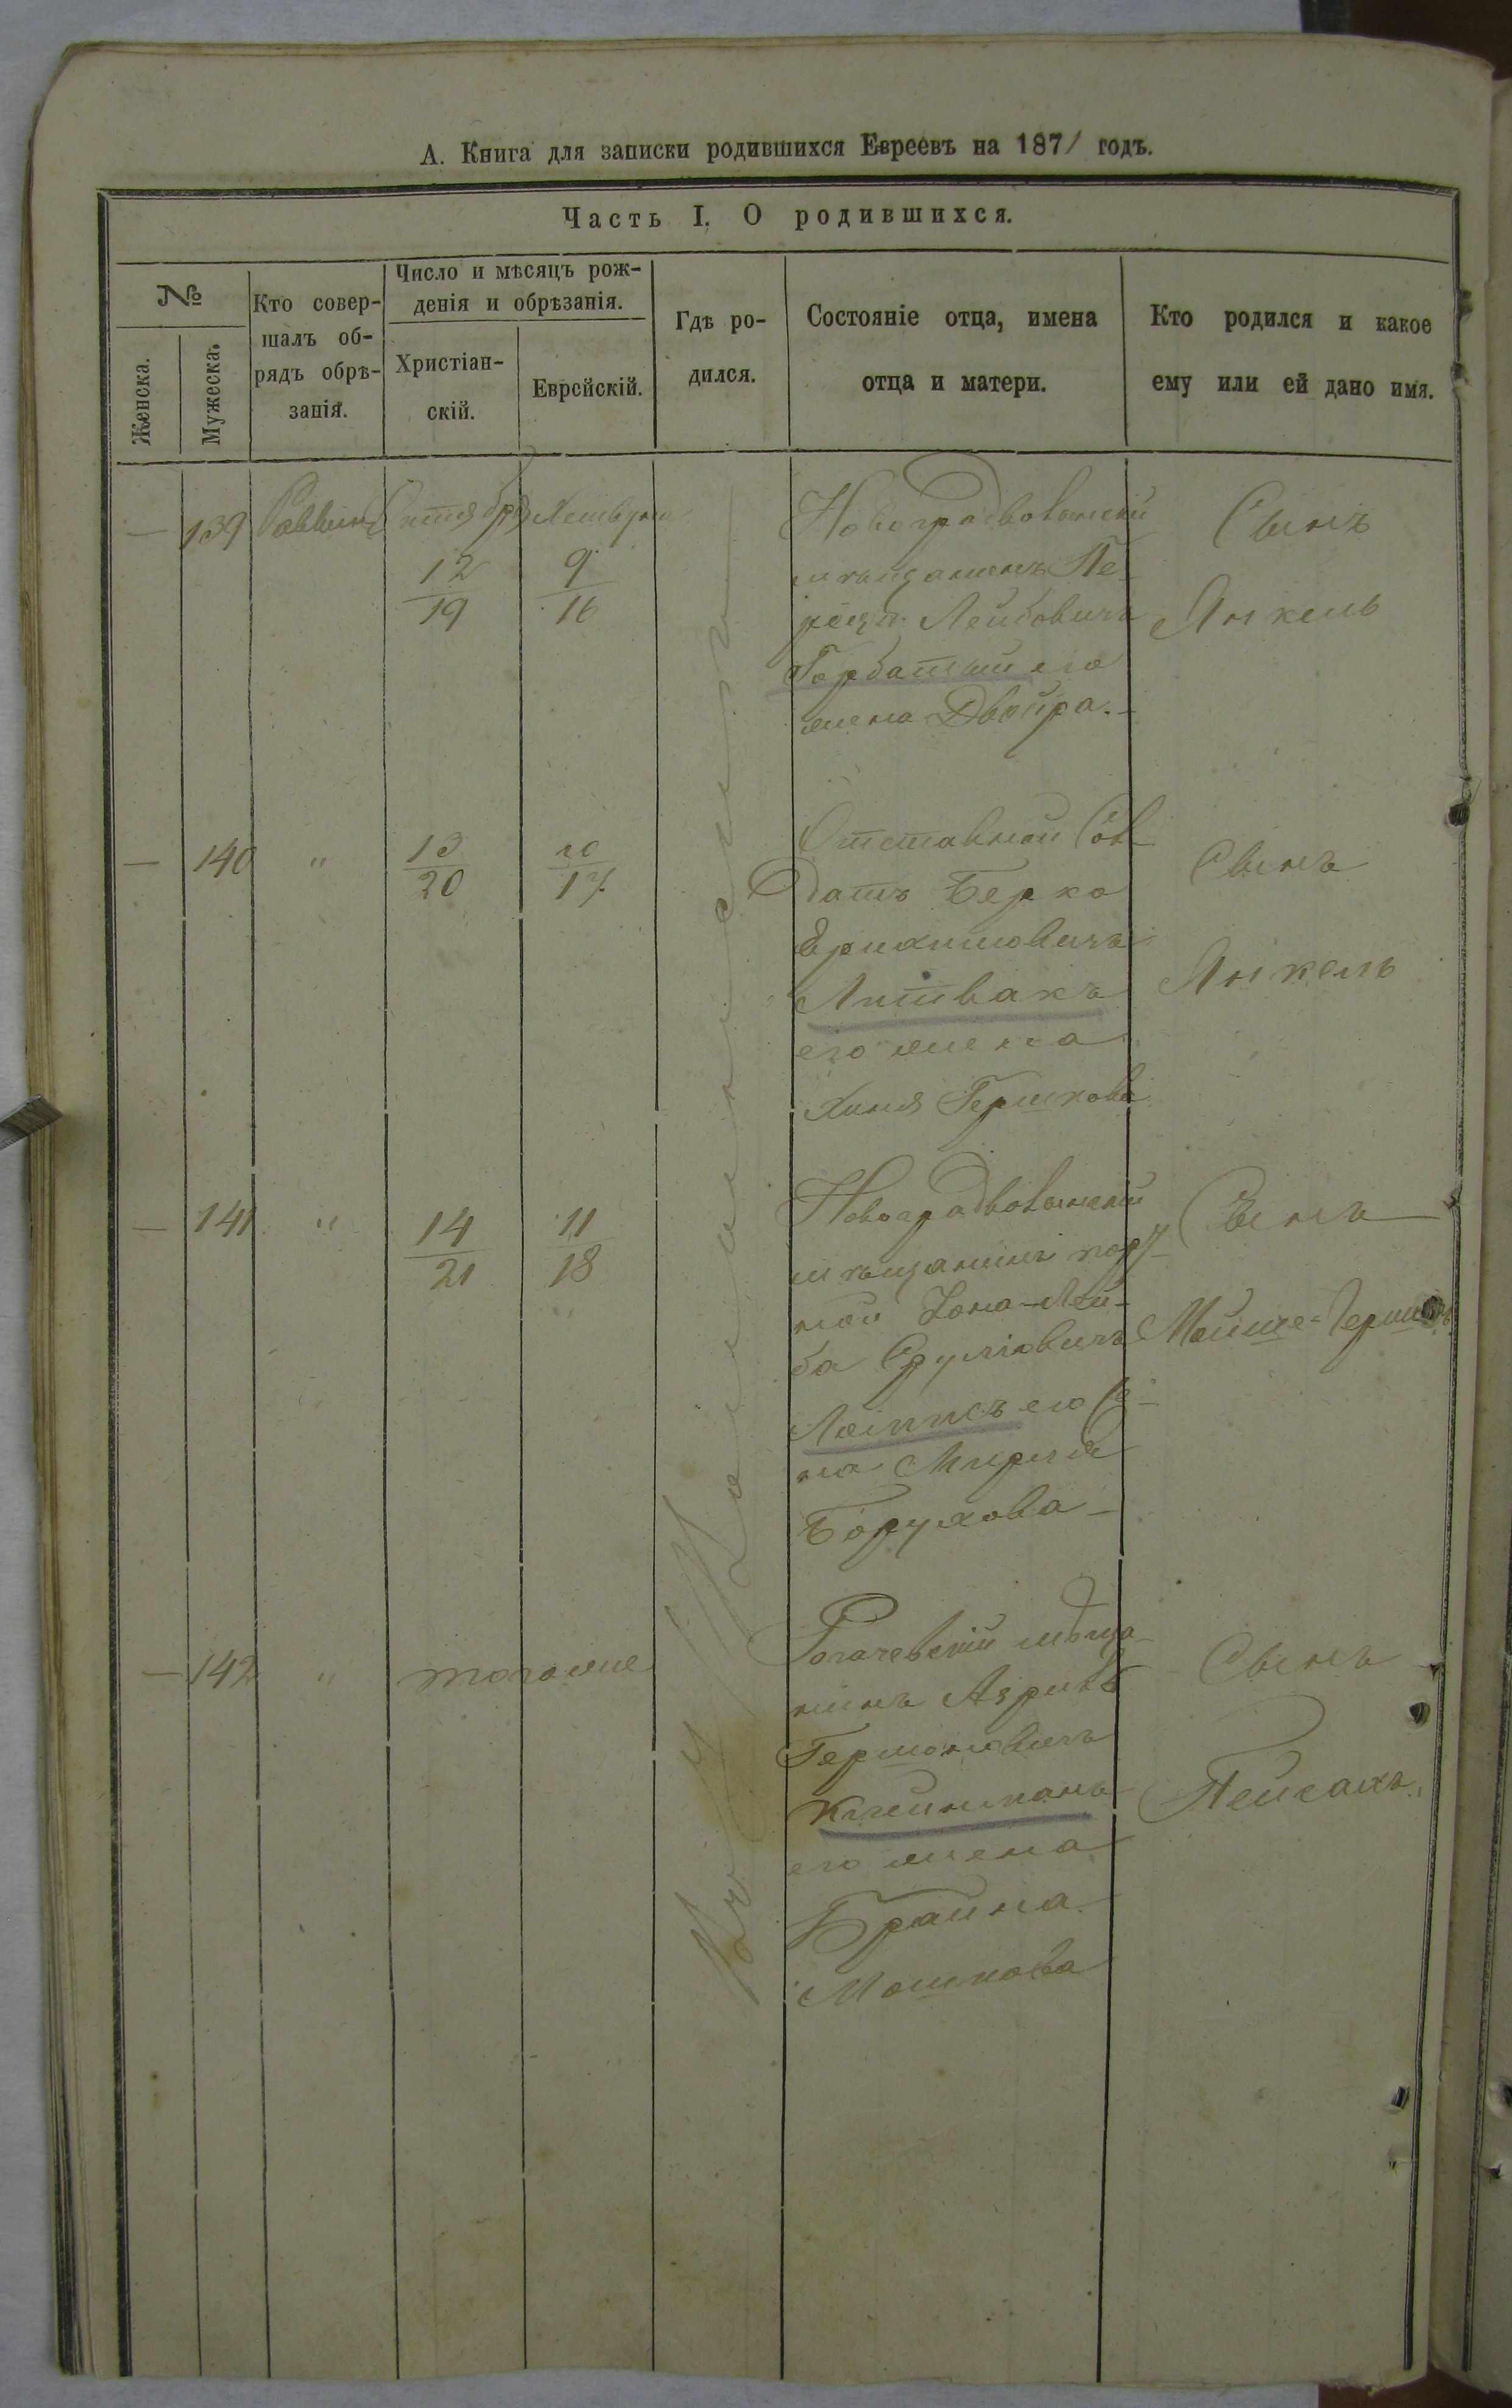 А. Книга для записки родившихся Евреевъ на 1871 годъ.
Часть I. О родившихся.
№
Женска.
Мужеска.
Кто совер-
шалъ об-
рядъ обрѣ-
занія.
Число и мѣсяцъ рож-
денія и обрѣзанія.
Христіан-
скій.
Еврейскій.
Гдѣ ро-
дился.
Состояніе отца, имена
отца и матери.
Кто родился и какое
ему или ей дано имя.
— 139 Раввинъ
12
19
9
16
Новоградволынскій
мѣщанинъ
Лейбовичъ
Горбатый его
жена Двойра.—
Сынъ
Янкель
— 140 "
13
20
10
17
Отставной Сол
датъ Берко
Литвакъ
его жена
Хиня Гершкова
Сынъ
Янкель
— 141 "
14
21
11
18
Новоградволынскій
мѣщанинъ порт
ной Лей-
ба Сруліовичъ
его Же-
на Мирля
Борухова —
Сынъ
Мойше-Гершко
— 142 "
тогоже
Рогачевскій мѣща
нинъ
Гершоновичъ
Клейнманъ
его жена
Брайна
Мошкова
Сынъ
Пейсахъ.